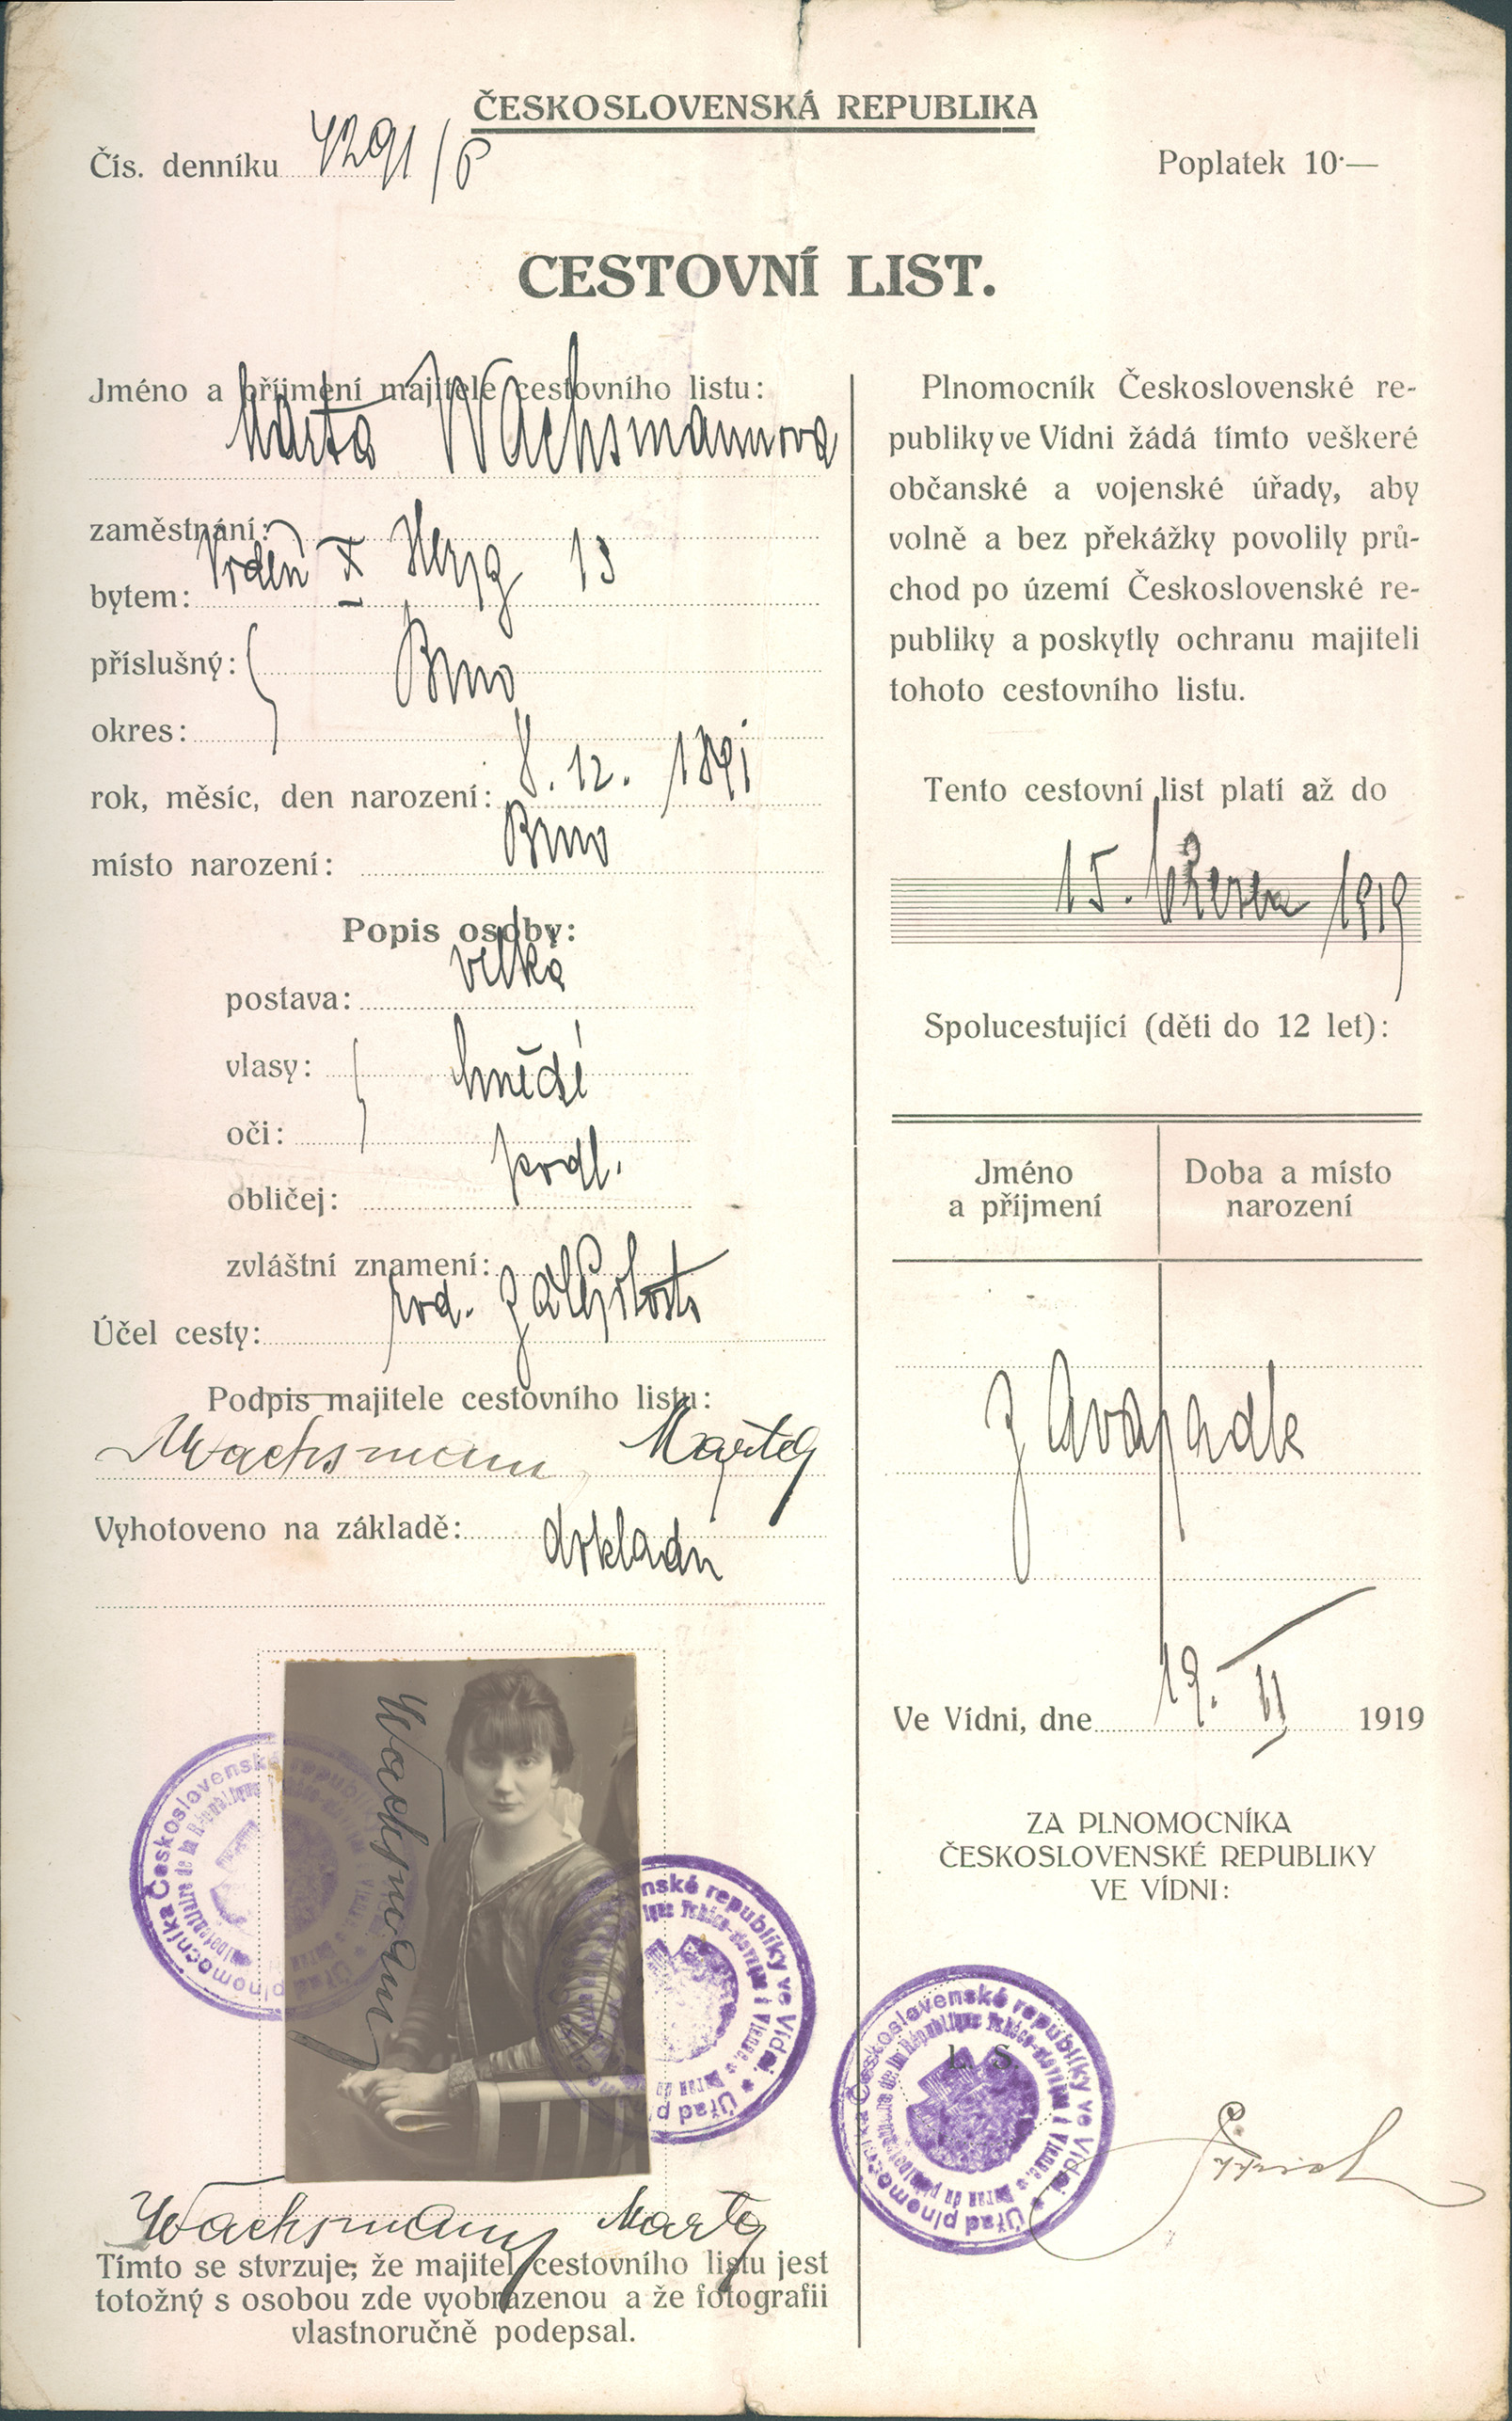 ČESKOSLOVENSKÁ REPUBLIKA
Čís. denníku 4291/6
Poplatek 10·—
CESTOVNÍ LIST.
Jméno a příjmení majitele cestovního listu:
Marta Wachsmannova
zaměstnání:
bytem: Vídeň X 13
příslušný: Brno
okres:
rok, měsíc, den narození: 8. 12. 1891
místo narození: Brno
Popis osoby:
postava: velká
vlasy: hnědé
oči:
obličej: podl.
zvláštní znamení:
Účel cesty: rod. záležitosti
Podpis majitele cestovního listu:
Wachsmann Marta
Vyhotoveno na základě: dokladů
Wachsmann
Wachsmann Marta
Tímto se stvrzuje, že majitel cestovního listu jest
totožný s osobou zde vyobrazenou a že fotografii
vlastnoručně podepsal.
Plnomocník Československé re-
publiky ve Vídni žádá tímto veškeré
občanské a vojenské úřady, aby
volně a bez překážky povolily prů-
chod po území Československé re-
publiky a poskytly ochranu majiteli
tohoto cestovního listu.
Tento cestovní list platí až do
15. března 1919
Spolucestující (děti do 12 let):
Jméno
a příjmení
Doba a místo
narození
Ve Vídni, dne 19. II 1919
ZA PLNOMOCNÍKA
ČESKOSLOVENSKÉ REPUBLIKY
VE VÍDNI:
L. S.
Úřad plnomocníka Československé republiky ve Vídni.